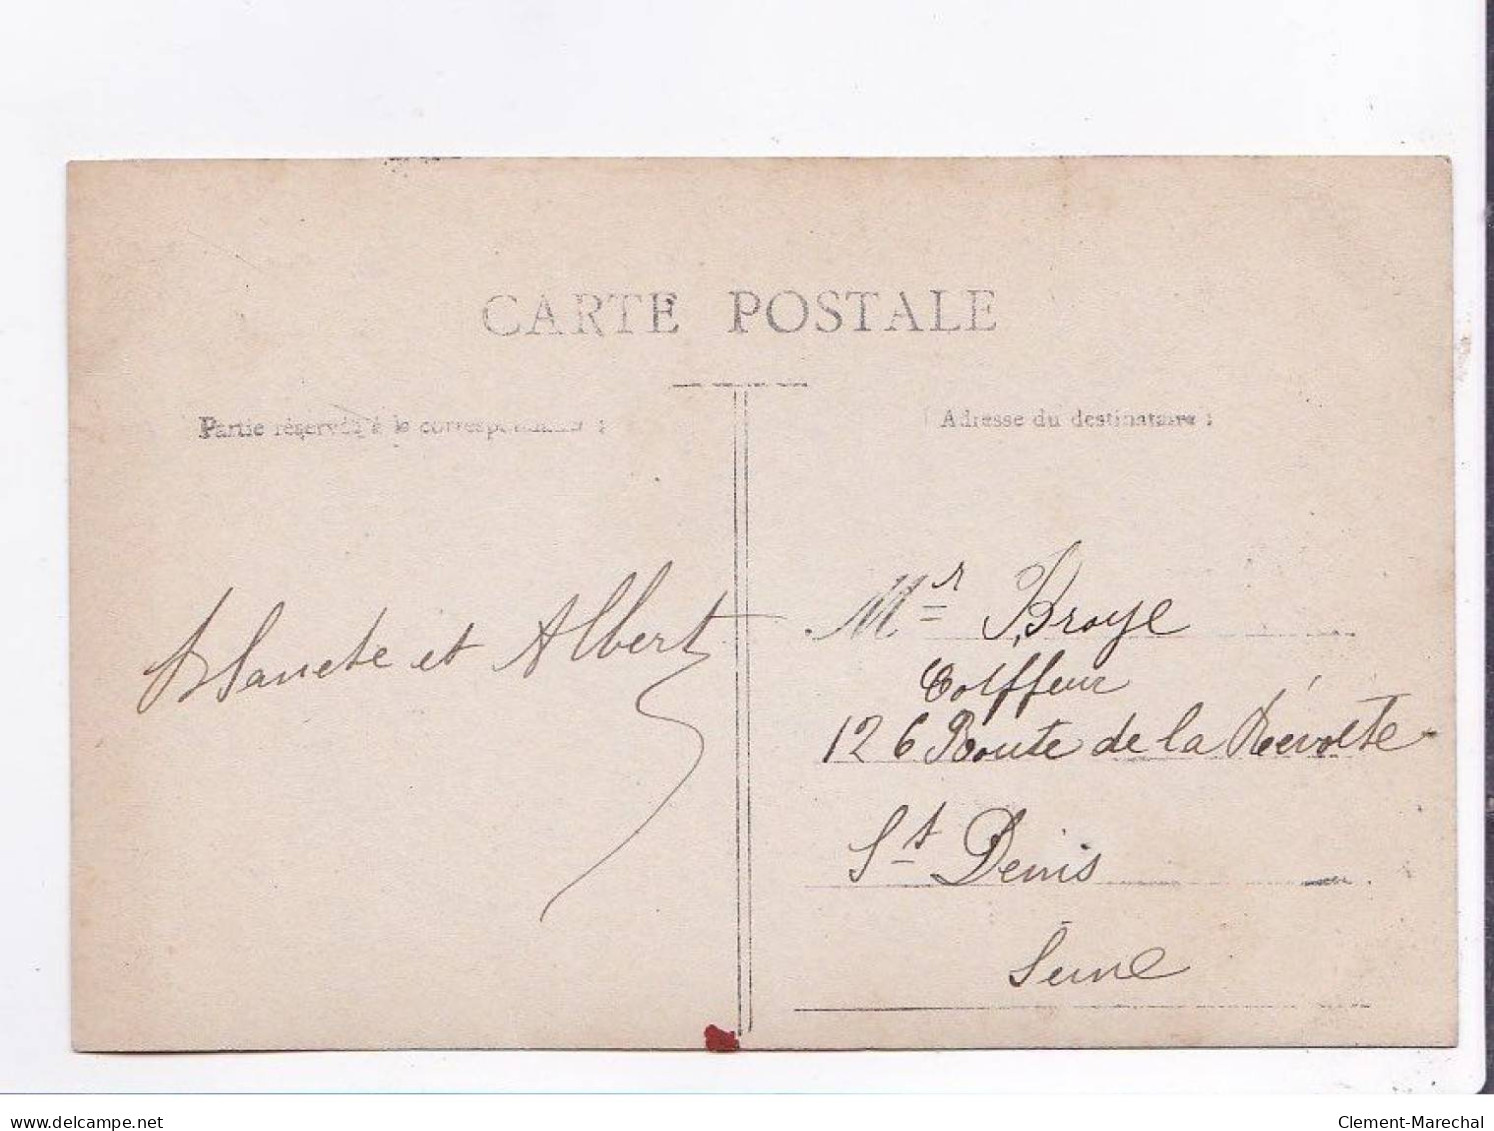 CARTE POSTALE
Partie réservée à la correspondance :
Adresse du destinataire :
Blanche et Albert
Mr Broye
Coiffeur
126 Route de la Révolte
St Denis
Seine
www.delcampe.net
Clement-Marechal